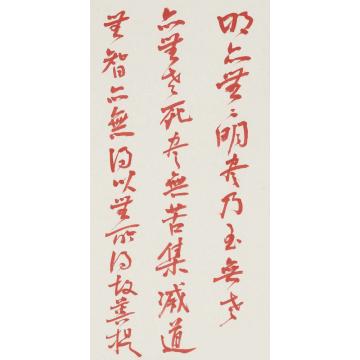 明亦無〻明盡乃至無老
亦無老死盡無苦集滅道
無智亦無得以無所得故菩提